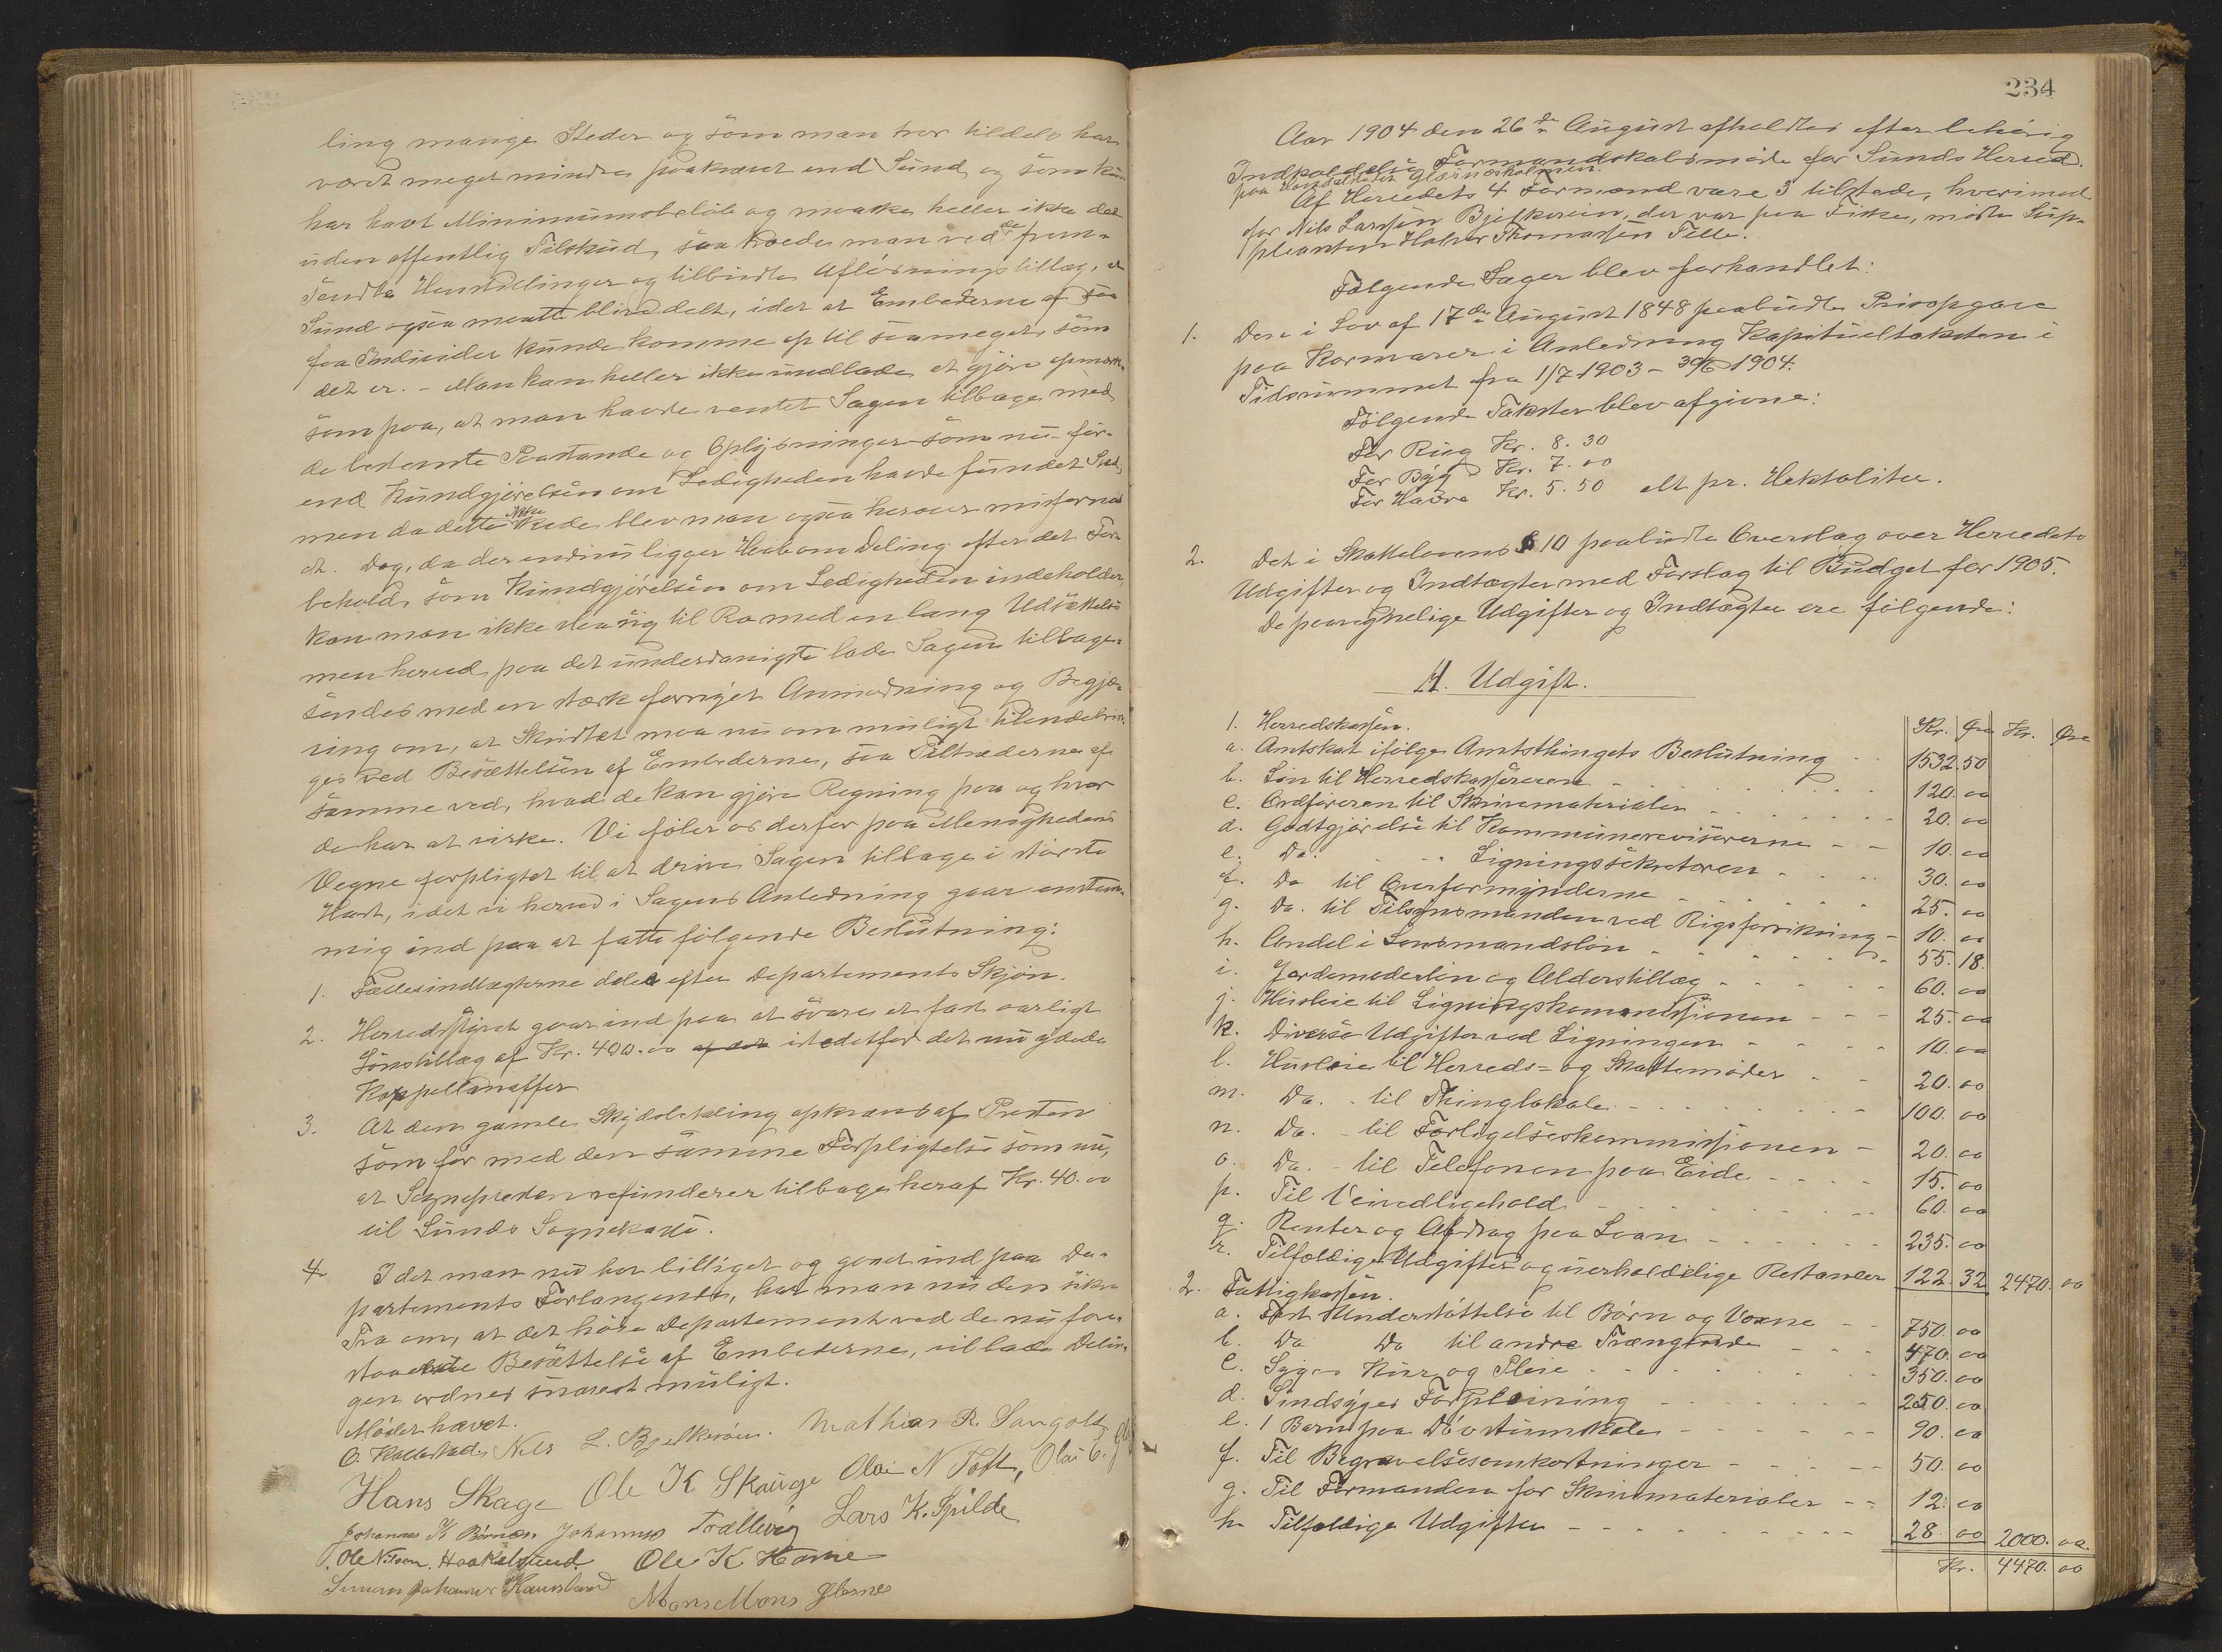 ling mange Steder og som man tror tildels har
været meget mindre paakrævet end Sund, og som kun
har havt Minimumsbeløb og maaske heller ikke det
uden offentlig Tilskud, saa troede man ved de frem-
sendte Henstillinger og tilbudte Afløsningstillæg, at
Sund ogsaa maatte blive delt, idet at Embederne af saa
faa Individer kunde komme op til saameget som
det er. - Man kan heller ikke undlade at gjøre opmærk-
som paa, at man havde ventet Sagen tilbage med
de bestemte Paastande og Oplysninger som nu - før-
end Kundgjørelsen om Ledigheden havde fundet Sted,
men da dette ikke skede blev man ogsaa herover misfornøi-
et. Dog, da der endnu ligger Haab om Deling efter det For-
behold, som Kundgjørelsen om Ledigheden indeholder,
kan man ikke slaa sig til Ro med en lang Udsættelse
men herved paa det underdanigste lade Sagen tilbage-
sendes med en stærk fornyet Anmodning og Begjæ-
ring om, at Skridtet maa nu om muligt tilendebrin-
ges ved Besættelsen af Embederne, saa Tiltræderne af
samme ved, hvad de kan gjøre Regning paa og hvor
de har at virke. Vi føler os derfor paa Menighedens
Vegne forpligtet til at drive Sagen tilbage i største
Hast, idet vi herved i Sagens Anledning gaar enstem-
mig ind paa at fatte følgende Beslutning:
1. Fællesindtægterne deles efter Departements Skjøn.
2. Herredsstyret gaar ind paa at svare et fast aarligt
Lønstillæg af Kr. 400.00 istedetfor det nu ydede
Kappellanoffer
3. At den gamle Skydsbetaling opkræves af Presten
som før med den samme Forpligtelse som nu,
at Sognepresten refunderer tilbage heraf Kr. 40.00
til Sunds Sognekasse.
4. Idet man nu har billiget og gaaet ind paa De-
partements Forlangende, har man nu den sikre
Tro om, at det høie Departement ved de nu fore-
staaende Besættelse af Embederne, vil lade Delin-
gen ordnes snarest muligt.
Mødet hævet.
O. Kallestad, Nils L. Bjelkerøen. Mathias R. Sangolt
Hans Skage Ole K Skauge Olai N Toft, Olai E.
Johannes K Børnes. Johannes Trællevig Lars K. Spilde
Ole Nilsen Haakelsund. Ole K Hamre
Simon Johannes Hausland Mons Mons Glesnes
234
Aar 1904 den 26de August afholdtes efter lovlig
Indkaldelse Formandskabsmøde for Sunds Herred.
paa Handelsstedet Glæsnesholmen.
Af Herredets 4 Formænd vare 3 tilstede, hvorimod
for Nils Larssen Bjelkerøen, der var paa Fiske, mødte Sup-
pleanten Halvor Thomassen Telle.
Følgende Sager blev forhandlet:
1. Den i Lov af 17de August 1848 paabudte Prisopgave
paa Kornvarer i Anledning Kapitueltaksten i
Tidsrummet fra 1/7 1903 - 30/6 1904.
Følgende Takster blev afgivne:
For Rug Kr. 8.30
For Byg Kr. 7.00
For Havre Kr. 5.50 alt pr. Hektoliter.
2. Det i Skattelovens § 10 paabudte Overslag over Herredets
Udgifter og Indtægter med Forslag til Budget for 1905.
De paaregnelige Udgifter og Indtægter ere følgende:
A. Udgift.
Kr. Øre Kr. Øre
1. Herredskassen.
a. Amtskat ifølge Amtsthingets Beslutning - - 1532.50
b. Løn til Herredskassereren - - - 120.00
c. Ordføreren til Skrivematerialer - - - 20.00
d. Godtgjørelse til Kommunerevisorerne - - 10.00
e. Do. - - Ligningssekretæren - - - 30.00
f. Do til Overformynderne - - - 25.00
g. Do. til Tilsynsmanden ved Rigsforsikring - 10.00
h. Andel i Lensmandsløn - - - 55.18
i. Jordemoderløn og Alderstillæg - - - 60.00
j. Husleie til Ligningskommissionen - - - 25.00
k. Diverse Udgifter ved Ligningen - - - 10.00
l. Husleie til Herreds- og Skattemøder - - 20.00
m. Do. - til Thinglokale - - - 100.00
n. Do. - til Forligelseskommissionen - 20.00
o. Do. - til Telefonen paa Eide - - - 15.00
p. Til Veivedligehold - - - 60.00
q. Renter og Afdrag paa Laan - - - 235.00
r. Tilfældige Udgifter og uerholdelige Restancer 122.32 2470.00
2. Fattigkassen.
a. Fast Understøttelse til Børn og Voxne - - 750.00
b. Do Do til andre Trængende - - - 470.00
c. Syges Kur og Pleie - - - 350.00
d. Sindsyges Forpleining - - - 250.00
e. 1 Barn paa Døvstumskole - - - 90.00
f. Til Begravelsesomkostninger - - - 50.00
g. Til Formanden for Skrivematerialer - - 12.00
h. Tilfældige Udgifter - - - 28.00 2000.00
Kr. 4470.00